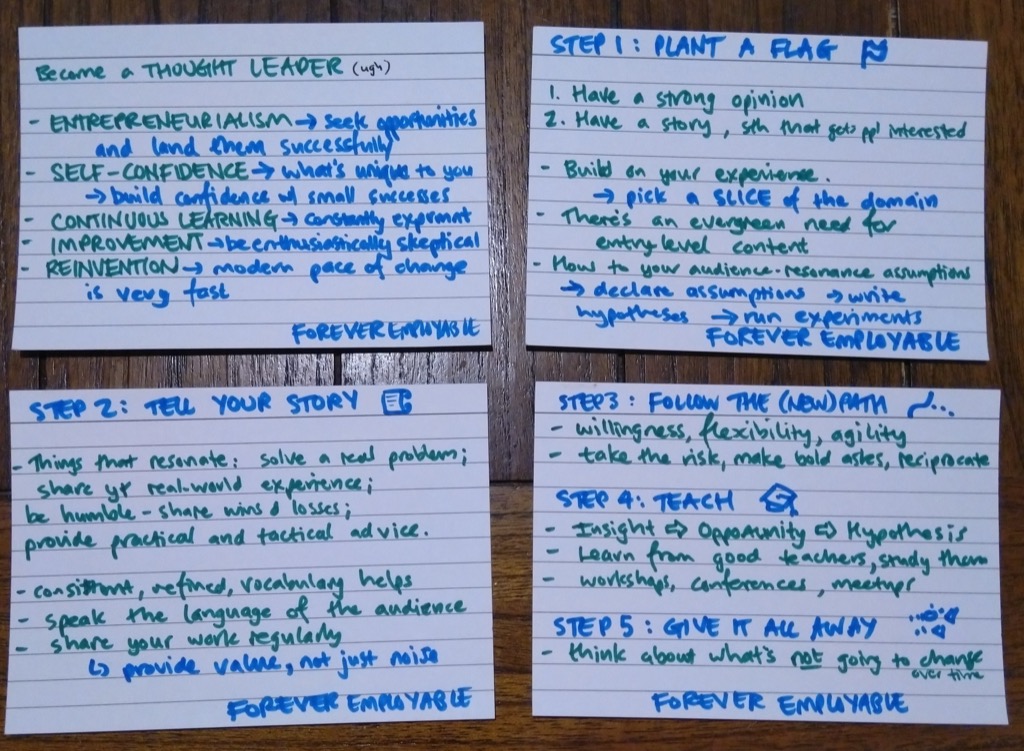 Become a THOUGHT LEADER (ugh)
- ENTREPRENEURIALISM → seek opportunities
and land them successfully
- SELF-CONFIDENCE → what's unique to you
→ build confidence w/ small successes
- CONTINUOUS LEARNING → constantly exprmnt
- IMPROVEMENT → be enthusiastically skeptical
- REINVENTION → modern pace of change
is very fast
FOREVER EMPLOYABLE
STEP 1: PLANT A FLAG
1. Have a strong opinion
2. Have a story, sth that gets ppl interested
- Build on your experience.
→ pick a SLICE of the domain
- There's an evergreen need for
entry-level content
- How to your audience-resonance assumptions
→ declare assumptions → write
hypotheses → run experiments
FOREVER EMPLOYABLE
STEP 2: TELL YOUR STORY
- Things that resonate: solve a real problem;
share yr real-world experience;
be humble - share wins & losses;
provide practical and tactical advice.
- consistent, refined, vocabulary helps
- speak the language of the audience
- share your work regularly
↳ provide value, not just noise
FOREVER EMPLOYABLE
STEP 3: FOLLOW THE (NEW) PATH
- willingness, flexibility, agility
- take the risk, make bold askes, reciprocate
STEP 4: TEACH
- Insight ⇨ Opportunity ⇨ Hypothesis
- Learn from good teachers, study them
- workshops, conferences, meetups
STEP 5: GIVE IT ALL AWAY
- think about what's not going to change
over time
FOREVER EMPLOYABLE